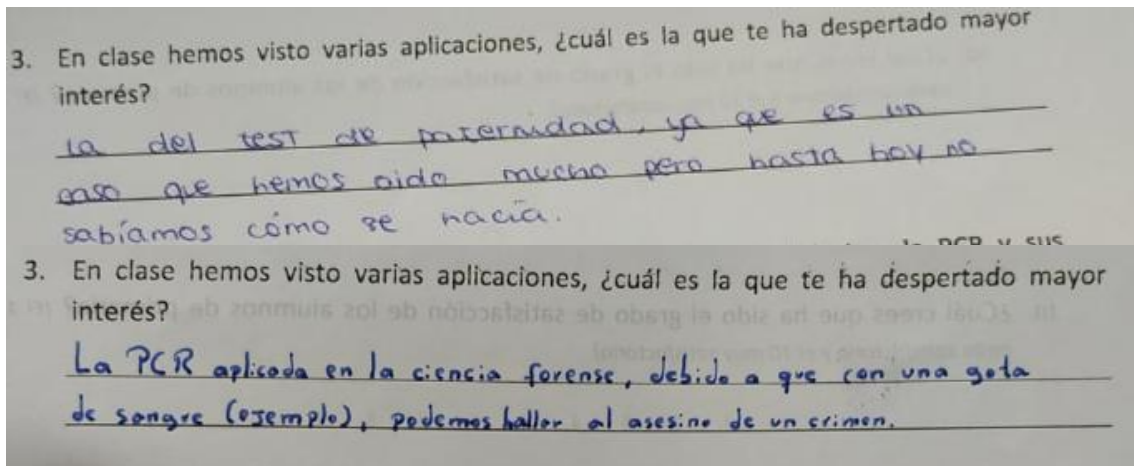 3. En clase hemos visto varias aplicaciones, ¿cuál es la que te ha despertado mayor
interés?
la del test de paternidad, ya que es un
caso que hemos oido mucho pero hasta hoy no
sabíamos cómo se hacía.
PCR y sus
3. En clase hemos visto varias aplicaciones, ¿cuál es la que te ha despertado mayor
interés?
La PCR aplicada en la ciencia forense, debido a que con una gota
de sangre (ejemplo), podemos hallar al asesino de un crimen.